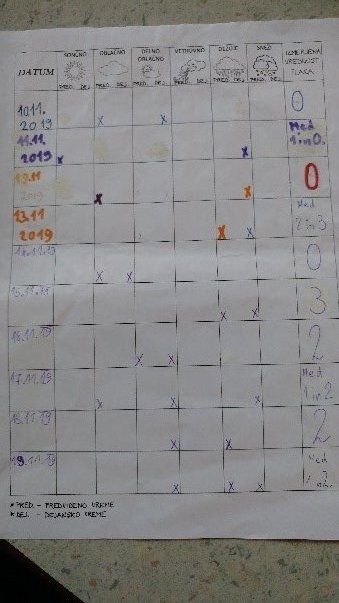 DATUM SONČNO OBLAČNO DELNO OBLAČNO VETROVNO DEŽUJE SNEG IZMERJENA VREDNOST TLAKA
PRED. DEJ. PRED. DEJ. PRED. DEJ. PRED. DEJ. PRED. DEJ. PRED. DEJ.
10.11. 2019 x x 0
11.11. 2019 x x Med 1 in 0.
2019 x x 0
13.11 2019 x x Med 2 in 3
14.11.19 x x 0
15.11.19 x x 3
16.11.19 x x 2
17.11.19 x x x Med 1 in 2
18.11.19 x x 2
19.11.19 x x x Med in 2.
* PRED. - PREDVIDENO VREME
* DEJ. - DEJANSKO VREME